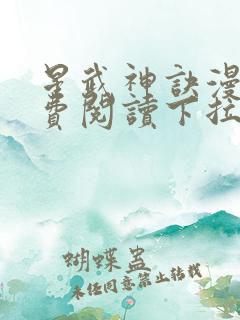 星武神訣漫
費閱讀下拉
蝴蝶蠱
未经同意禁止转载